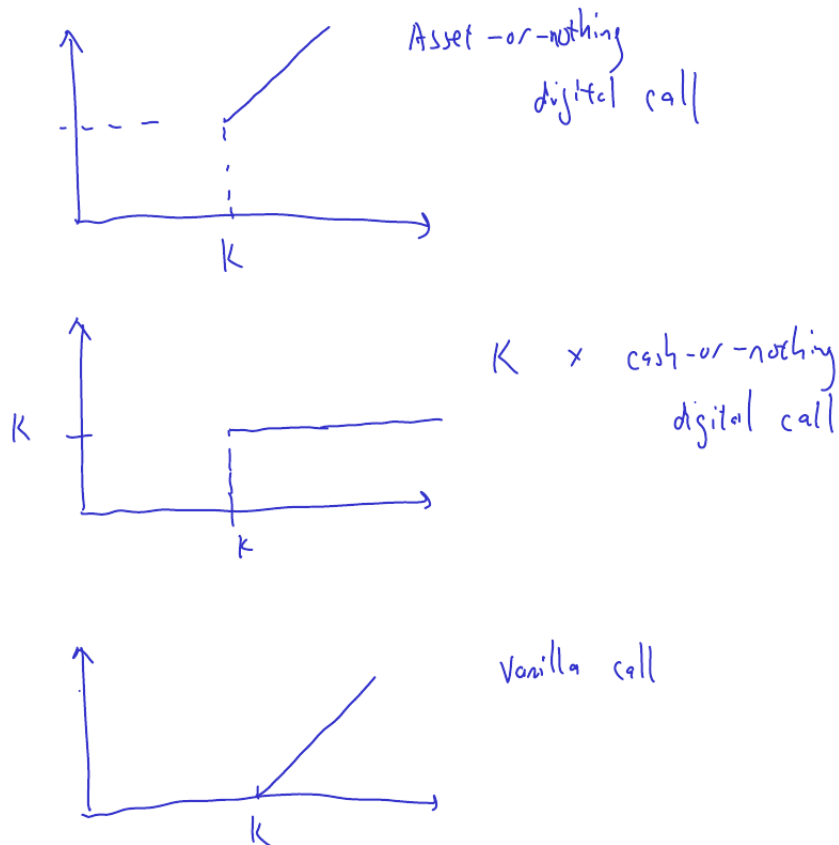 Asset-or-nothing
digital call
K
K x cash-or-nothing
digital call
K
K
Vanilla call
K